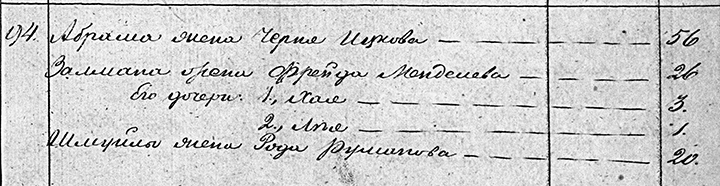 194. Абрама жена Черня Ицкова — — — — — 56
Залмана жена Фрейда Менделева — — — — 26
Его дочери: 1., Хая — — — — — — — 3.
2., Лея — — — — — — — 1.
Шмуйлы жена Рода Руманова — — — — — 20.